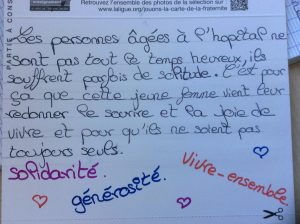 PARTIE À CONS
Retrouvez l'ensemble des photos de la sélection sur :
www.laligue.org/jouons-la-carte-de-la-fraternite
Les personnes âgées à l'hopital ne
sont pas tout le temps heureux, ils
souffrent parfois de solitude. C'est pour
ça que cette jeune femme vient leur
redonner le sourire et la joie de
vivre et pour qu'ils ne soient pas
toujours seuls.
solidarité.
générosité.
vivre-ensemble.